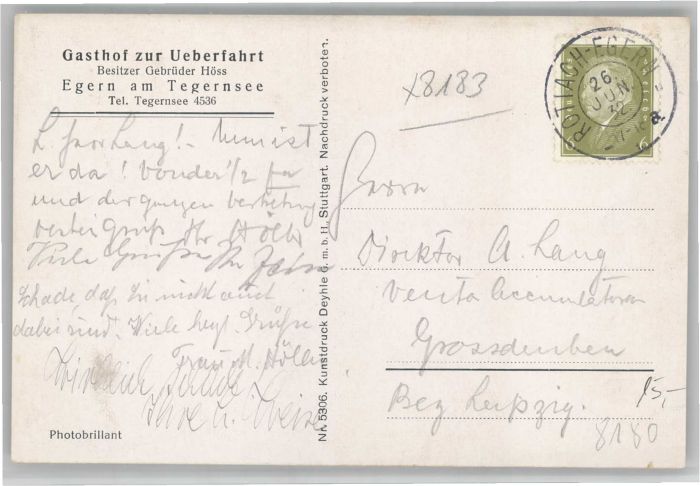 Gasthof zur Ueberfahrt
Besitzer Gebrüder Höss
Egern am Tegernsee
Tel. Tegernsee 4536
L. Herr Lang! - Nun ist
er da! Von der 1/2
und der ganzen Vertretung
Gruß Ihr Hölle
Viele Grüße Ihr
Schade, daß Sie nicht auch
dabei sind. Viele herzl. Grüße
Frau M. Hölle
Photobrillant
Nr. 5306. Kunstdruck Deyhle G. m. b. H., Stuttgart. Nachdruck verboten.
x8183
ROTTACH-EGERN
26.
JUN.
32
a
6
6
Herrn
Direktor A. Lang
Venta Accumulatoren
Grossdeuben
Bez Leipzig.
15,-
8180